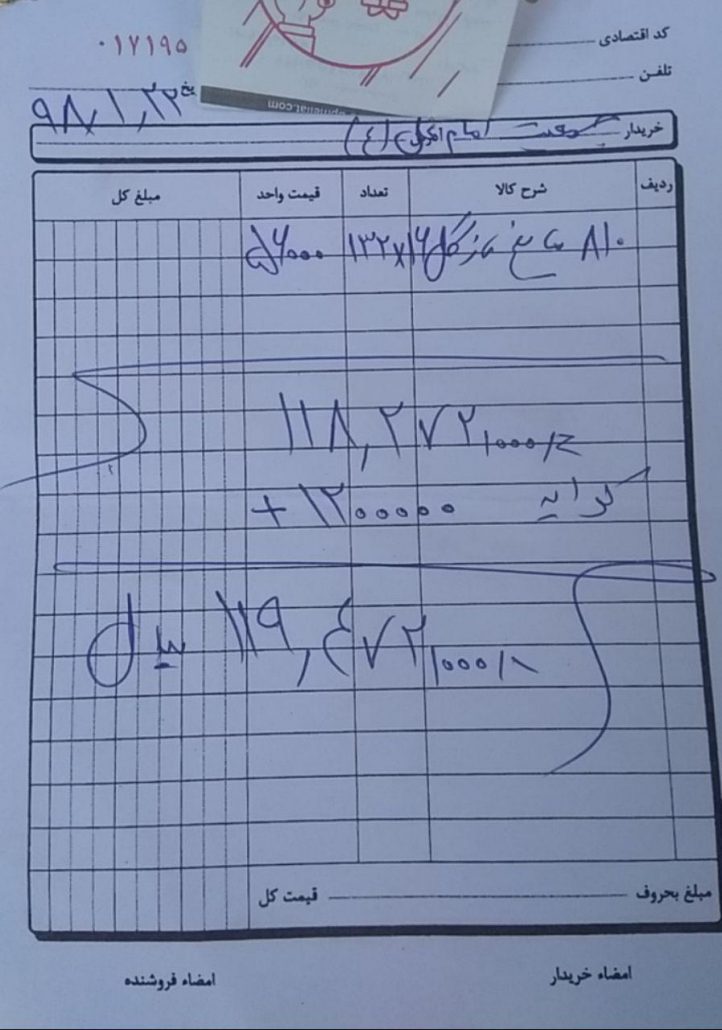 کد اقتصادی
۰۱۷۱۹۵
تلفن
۹۸,۱,۲۲
خریدار جمعیت امام علی (ع)
ردیف شرح کالا تعداد قیمت واحد مبلغ کل
۸۱۰ ۱۳۲x۱۶ ۵۶۰۰۰
۱۱۸,۲۷۲,۰۰۰
کرایه ۱۲۰۰۰۰۰ +
۱۱۹,۴۷۲,۰۰۰ ریال
مبلغ بحروف قیمت کل
امضاء خریدار امضاء فروشنده